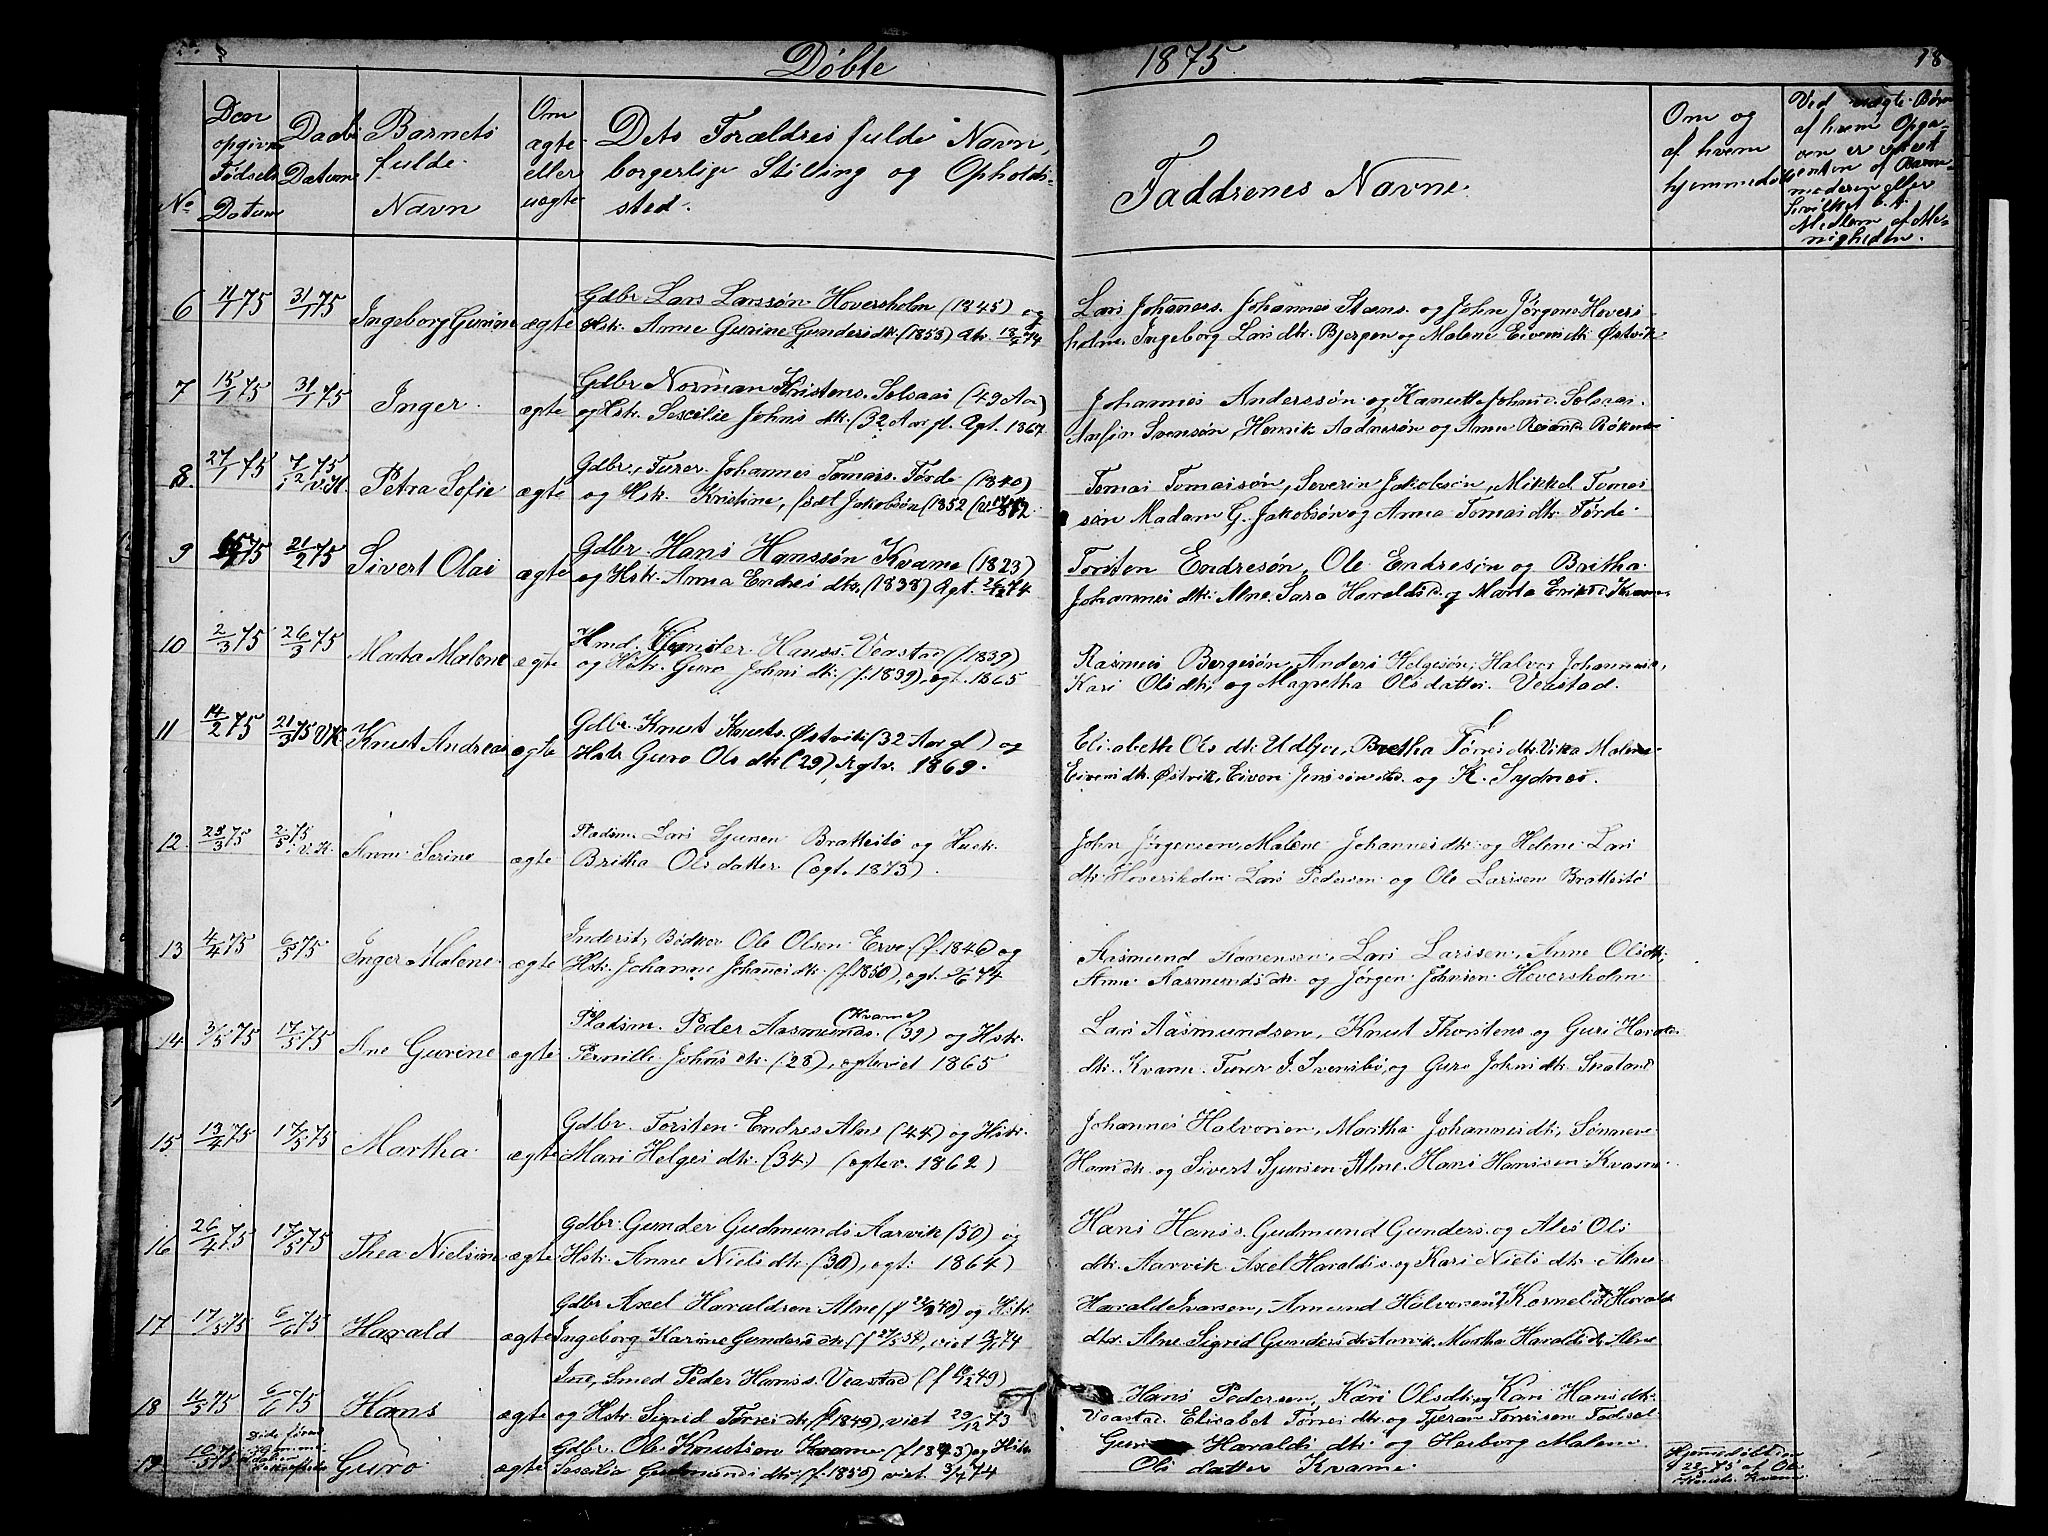 Döbte 1875. 18
No
Den opgivne Fødsels Datum
Daabs Datum
Barnets fulde Navn
Om ægte eller uægte
Dets Forældres fulde Navn, borgerlige Stilling og Opholdssted.
Faddrenes Navne.
Om og af hvem hjemmedøbt
Ved uægte Børn af hvem Opgaven er
Medlem af Menigheden.
6 11/1 75 31/1 75 Ingeborg Gurine ægte
Gdbr. Lars Larssøn Hoversholm (1845) og
Hstr. Anne Gurine Gunders dtr. (1853)
Lars Johannes. Johannes Stens. og John Jørgens. Hovers-
holm. Ingeborg Lars dtr. Bjergen og Malene Eivens dtr. Østvik
7 15/1 75 31/1 75 Inger. ægte
Gdbr Norman Kristens. Solsaas (49 Aar)
og Hstr. Sescilie Johns dtr. (32 Aar gl. Ægt. 1867.
Johannes Anderssøn og Kanutte Johnsd. Solsaas.
Svensøn, Henrik Aadnesøn og Anne
8. 27/1 75 7/2 75 i V.K. Petra Sofie ægte
Gdbr., Furer. Johannes Tomass. Førde (1840)
og Hstr. Kristine, født Jakobsøn (1852
Tomas Tomassøn, Severin Jakobsøn, Mikkel Tomas
søn Madam G. Jakobsøn og Anna Tomas dtr. Førde.
9 75 21/2 75 Sivert Olai ægte
Gdbr. Hans Hanssøn Kvame (1823)
og Hstr. Anna Endres dtr. (1838) Ægt. 26/2 74
Torsten Endresøn, Ole Endresøn og Britha
Johannes dtr. Alne. Sara Haralds d. og Marta Eriks d. Kvame
10 2/3 75 26/3 75 Marta Malene ægte
Hmd. Hanss. Veastad (f. 1839)
og Hstr. Guro Johns dtr. (f. 1839), ægt. 1865
Rasmus Bergesøn, Anders Helgesøn, Halvor Johannes
Kari Ols dtr. og Magretha Olsdatter. Veastad.
11 14/2 75 21/3 75 VK Knut Andreas ægte
Gdbr. Knut Knuts. Østvik (32 Aar gl) og
Hstr Guro Ols dtr. (29) Ægtv. 1869.
Elisabeth Ols dtr. Bretha Tørres dtr. Vika Malene
Eivens dtr. Østvik, Eiven og K. Sydnes.
12. 29/3 75 2/5 75 i V.K. Anne Serine ægte
Pladsm. Lars Sjursen Brattestø og Hustr.
Britha Olsdatter (ægt. 1873).
John Jørgensen, Malene Johannes dtr. og Helene Lars
dtr. Hoversholm. Lars Pedersen og Ole Larssen Brattestø
13 4/4 75 6/5 75 Inger Malene. ægte
Inderst, Bødker Ole Olsen Erve (f. 1846) og
Hstr. Johanne Johannes dtr. (f. 1850), ægt. 74
Aasmund Larssen, Lars Larssen, Anne Olsdtr,
Anne Aasmunds dtr. og Jørgen Johnsen Hoversholm
14 3/5 75 17/5 75 Ane Gurine ægte
Pladsm. Peder Aasmunds. (Kvame) (39) og Hstr.
Pernille Johns dtr. (28), ægteviet 1865
Lars Aasmundsen, Knut Thorstens og Guri Haralds
dtr. Kvame. Furer J. Svensbø, og Guro Johns dtr.
15 13/4 75 17/5 75 Martha ægte
Gdbr. Torsten Endres. Alne (44) og Hstr.
Mari Helges dtr. (34) (ægtev. 1862)
Johannes Halvorsen, Maritha Johannes dtr., Sønneve
Hans dtr. og Sivert Sjursen Alne. Hans Hanssen Kvame
16 26/4 75 17/5 75 Thea Nielsine ægte
Gdbr. Gunder Gudmunds Aarvik (50) og
Hstr. Anne Niels dtr. (30), ægt. 1864)
Hans Hans s. Gudmund Gunders. og Ales Ols
dtr. Aarvik. Axel Haralds s. og Kari Niels dtr. Alne
17 17/5 75 6/6 75 Harald ægte
Gdbr Axel Haraldsen Alne (f. 40) og Hstr.
Ingeborg Karine Gunders dtr. (f. 54), viet 74
Harald Ivarsen, Amund Halvorsen, Kornelia Harald
dtr. Alne. Sigrid Gunders dtr. Aarvik. Martha Haralds dtr. Alne
18 11/5 75 6/6 75 Hans ægte
Ine, Smed Peder Hanss. Veastad (f. 49)
og Hstr. Sigrid Tørres dtr. (f. 1849), viet 29/12 73
Hans Pedersen, Kari Olsdtr. og Kari Hans dtr.
Veastad. Elisabet Tørres dtr. og Tjeran Torresen
19 10/5 75 Guro ægte
Gdbr. Ole Knutsen Kvame (f. 1843) og Hstr.
Sescilia Gudmunds dtr. (f. 1850) viet 74
Guri Haralds dtr. og Herborg Malene
Ols datter Kvame.
Hjemmedøbt den 23/5 75 af Ole Knuts. Kvame